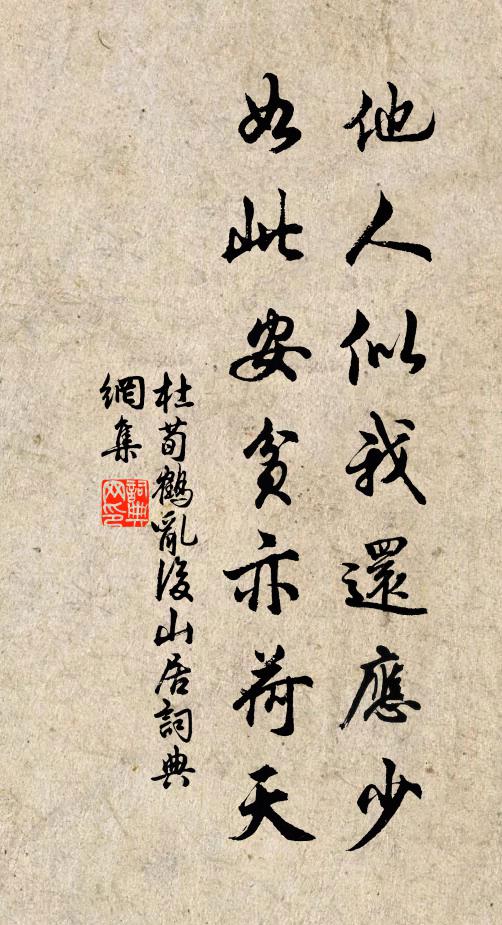 他人似我還應少
如此安貧亦荷天
杜荀鶴亂後山居詞典
網集
詞典
网印